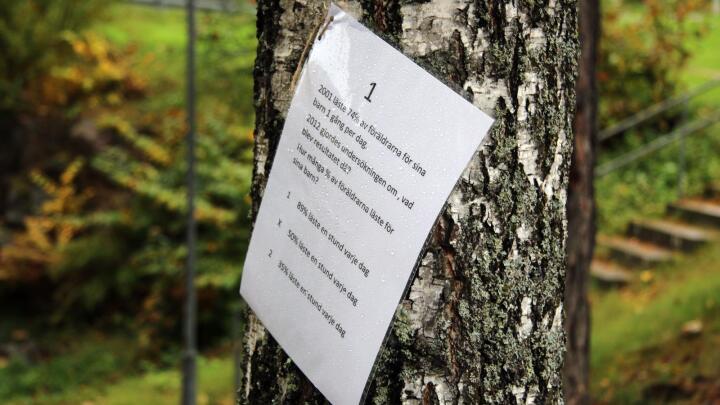 1
2001 läste 74% av föräldrarna för sina
barn 1 gång per dag.
2012 gjordes undersökningen om , vad
blev resultatet då?
Hur många % av föräldrarna läste för
sina barn?
1 89% läste en stund varje dag
X 50% läste en stund varje dag
2 35% läste en stund varje dag